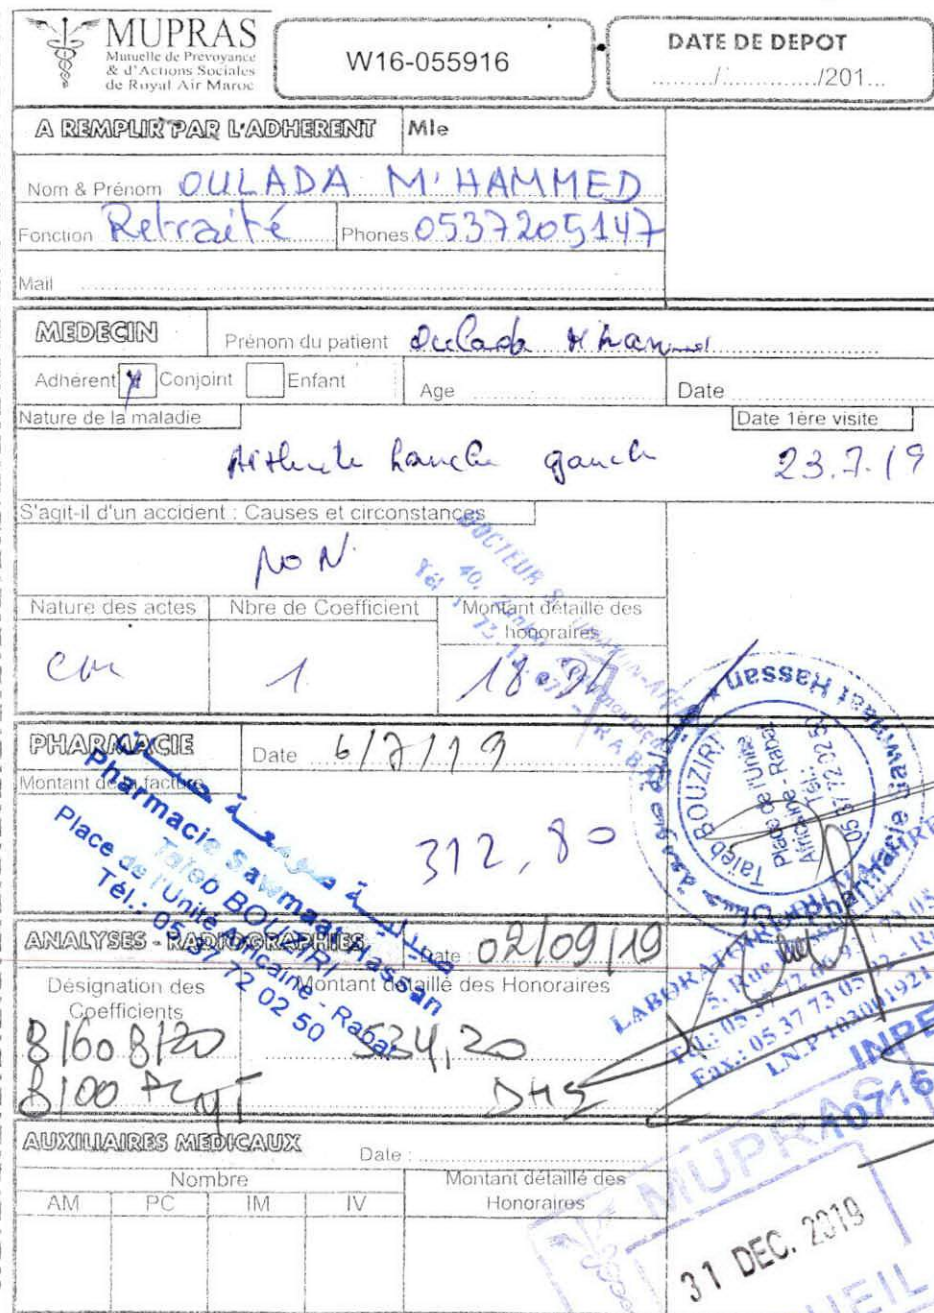 MUPRAS
Mutuelle de Prévoyance
& d'Actions Sociales
de Royal Air Maroc
W16-055916
DATE DE DEPOT
......../................/201...
A REMPLIR PAR L'ADHERENT Mle
Nom & Prénom OULADA M'HAMMED
Fonction Retraité Phones 0537205147
Mail
MEDECIN Prénom du patient Oulada
Adhérent Conjoint Enfant Age Date
Nature de la maladie Date 1ère visite
hanche gauche 23.7.19
S'agit-il d'un accident : Causes et circonstances
NON
DOCTEUR
Nature des actes Nbre de Coefficient Montant détaillé des honoraires
1
PHARMACIE Date 6/7/19
Montant de la facture
312,80
Pharmacie Sawmaat Hassan
Taïeb BOUZIRI
Place de l'Unité Africaine - Rabat
Tél.: 05 37 72 02 50
Pharmacie Sawmaat Hassan
Taïeb BOUZIRI
Place de l'Unité
Africaine - Rabat
Tél.:
05 37 72 02 50
ANALYSES - RADIOGRAPHIES Date 02/09/19
Désignation des Coefficients Montant détaillé des Honoraires
B160 B120 534,20
B100 DHS
LABORATOIRE
5, Rue
Fax.: 05 37 73 05
INPE
AUXILIAIRES MEDICAUX Date :
Nombre Montant détaillé des Honoraires
AM PC IM IV
MUPRAS
31 DEC. 2019